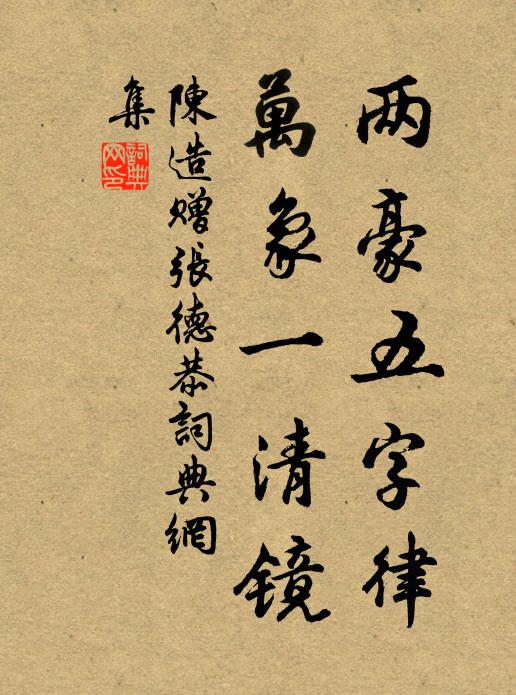 两豪五字律
萬象一清镜
陳造贈張德恭詞典網
集
詞典
网印